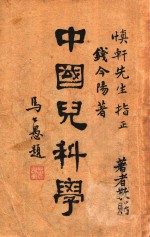 慎軒先生指正
錢今陽著
中國兒科學
馬公愚題
著者敬贈